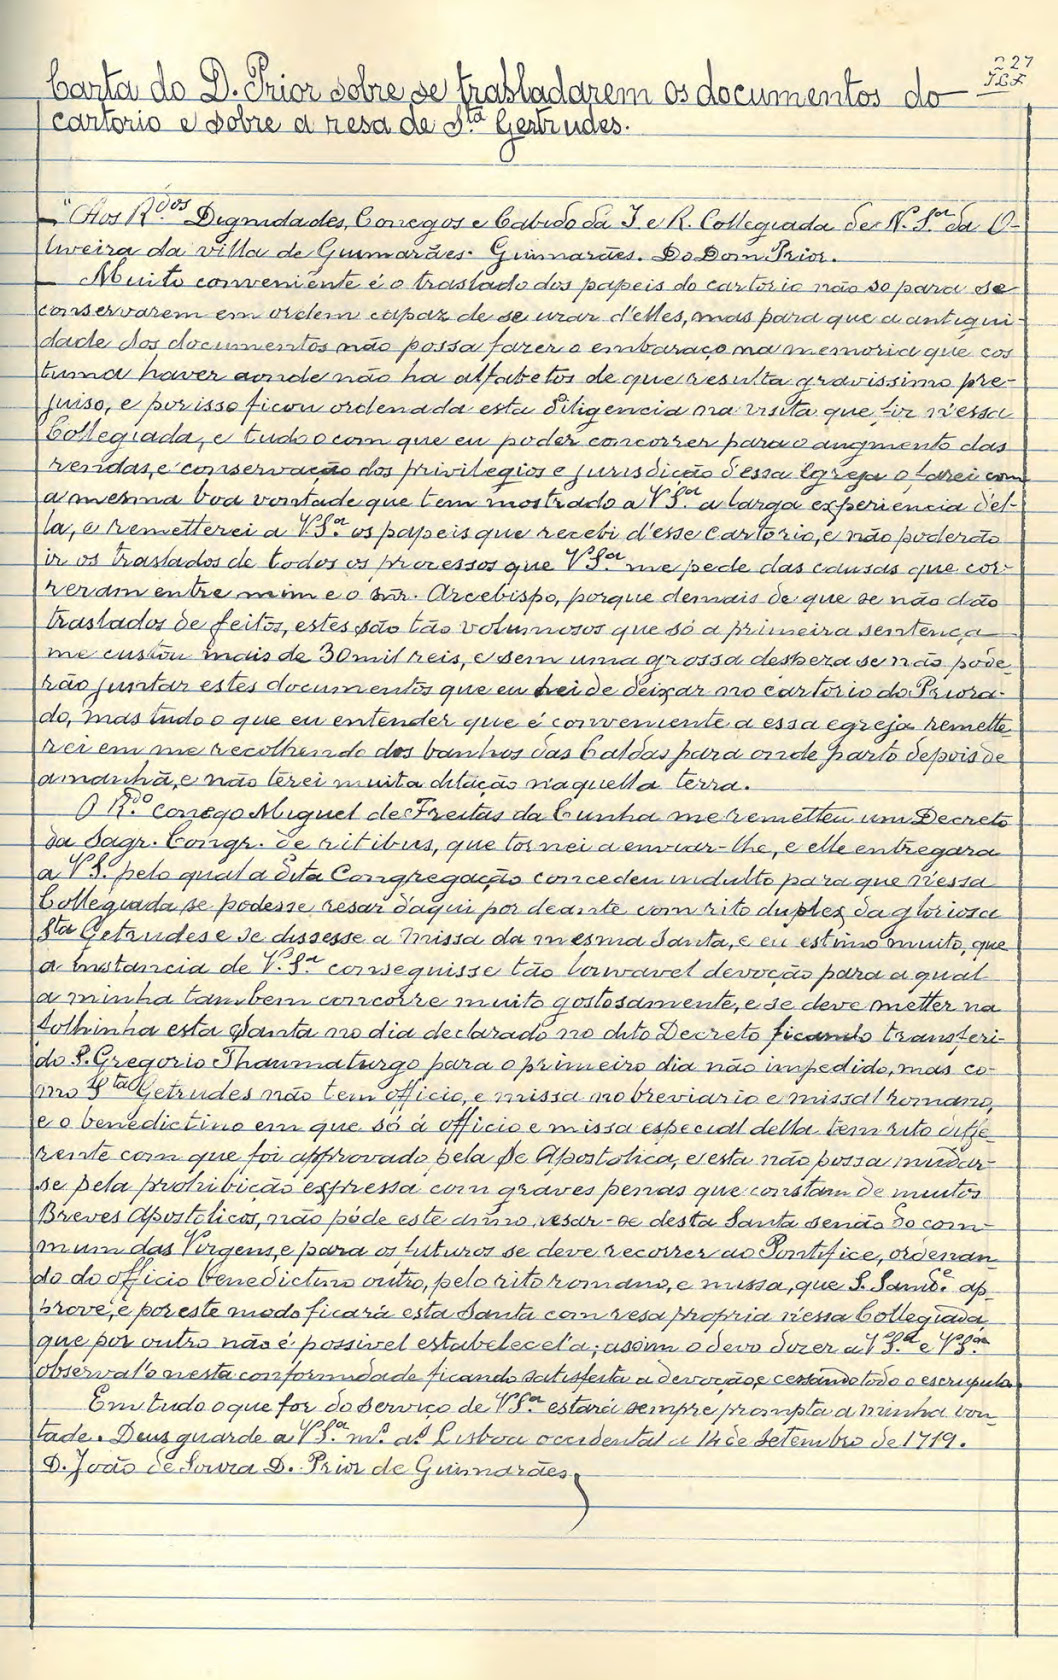 227
Carta do D. Prior sobre se trasladarem os documentos do
cartorio e sobre a resa de Sta Gertrudes.
— "Aos R.dos Dignidades, Conegos e Cabido da I. e R. Collegiada de N. Sra da O-
liveira da villa de Guimarães. Guimarães. Do Dom Prior.
— Muito conveniente é o traslado dos papeis do cartorio não so para se
conservarem em ordem capaz de se uzar d'elles, mas para que a antigui-
dade dos documentos não possa fazer o embaraço na memoria que cos
tuma haver aonde não ha alfabetos de que resulta gravissimo pre-
juiso, e por isso ficou ordenada esta diligencia na visita que fiz n'essa
Collegiada, e tudo o com que eu poder concorrer para o augmento das
rendas, e conservação dos privilegios e jurisdição d'essa Egreja o farei com
a mesma boa vontade que tem mostrado a VSra a larga experiencia d'el-
la, e remetterei a VSra os papeis que recebi d'esse cartorio, e não poderão
ir os traslados de todos os processos que VSra me pede das causas que cor-
reram entre mim e o snr. Arcebispo, porque demais de que se não dão
traslados de feitos, estes são tão volumosos que só a primeira sentença
me custou mais de 30 mil reis, e sem uma grossa despeza se não pode-
rão juntar estes documentos que eu hei de deixar no cartorio do Priora-
do, mas tudo o que eu entender que é conveniente a essa egreja remette
rei em me recolhendo dos banhos das Caldas para onde parto depois de
amanhã, e não terei muita dilação n'aquella terra.
O R.do conego Miguel de Freitas da Cunha me remetteu um Decreto
da Sagr. Congr. de ritibus, que tornei a enviar-lhe, e elle entregara
a VS. pelo qual a dita Congregação concedeu indulto para que n'essa
Collegiada se podesse resar d'aqui por deante com rito duplex da gloriosa
Sta Getrudes e se dissesse a missa da mesma Santa, e eu estimo muito, que
a instancia de V. Sra conseguisse tão louvavel devoção para a qual
a minha tambem concorre muito gostosamente, e se deve metter na
folhinha esta Santa no dia declarado no dito Decreto ficando transferi-
do S. Gregorio Thaumaturgo para o primeiro dia não impedido, mas co-
mo Sta Getrudes não tem officio, e missa no breviario e missal romano,
e o benedictino em que só á officio e missa especial della tem rito diffe-
rente com que foi approvado pela Se Apostolica, e esta não possa mudar-
se pela prohibição expressa com graves penas que constam de muitos
Breves Apostolicos, não póde este anno resar-se desta Santa senão do com-
mum das Virgens, e para os futuros se deve recorrer ao Pontifice, ordenan-
do do officio benedictino outro, pelo rito romano, e missa, que S. Sand.e ap-
prove, e por este modo ficará esta Santa com resa propria n'essa Collegiada,
que por outro não é possivel estabelecel'a; assim o devo dizer a VSra e VSra
observal'o nesta conformidade ficando satisfeita a devoção, e cessando todo o escrupulo.
Em tudo o que for do serviço de VSra estará sempre prompta a minha von-
tade. Deus guarde a VSra m.s a.s Lisboa occidental a 14 de Setembro de 1719.
D. João de Souza D. Prior de Guimarães